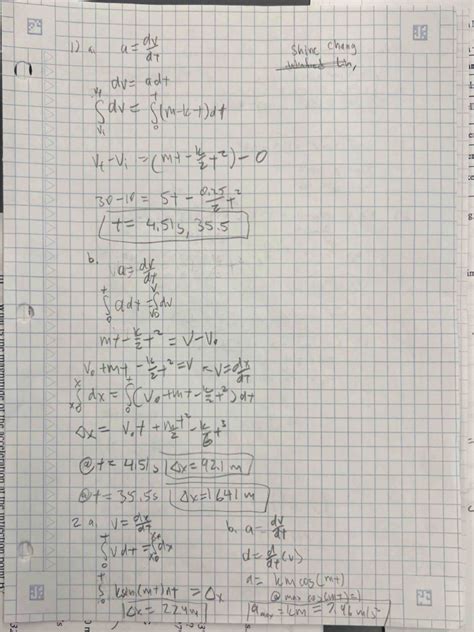 Shine Chang
1) a. a = dv/dt
dv = a dt
∫_{vi}^{vf} dv = ∫_0^t (m-k-t)dt
vf - vi = (mt - k/2 t²) - 0
30-10 = 5t - 0.25/2 t²
t = 4.51s, 35.5
b.
a = dv/dt
∫_0^t a dt = ∫_{v0}^v dv
mt - k/2 t² = v - v₀
v₀ + mt - k/2 t² = v = v = dx/dt
∫_{x0}^x dx = ∫_0^t (v₀ + mt - k/2 t²) dt
Δx = v₀t + mt²/2 - k/6 t³
@ t = 4.51s Δx = 92.1 m
@ t = 35.5s Δx = 1641 m
2 a. v = dx/dt
∫_0^t v dt = ∫_{x0}^x dx
∫_0^t k sin(mt) dt = Δx
Δx = 2.24m
b. a = dv/dt
a = d/dt (v)
a = km cos(mt)
@ max cos(mt) = 1
a max = km = 7.96 m/s²